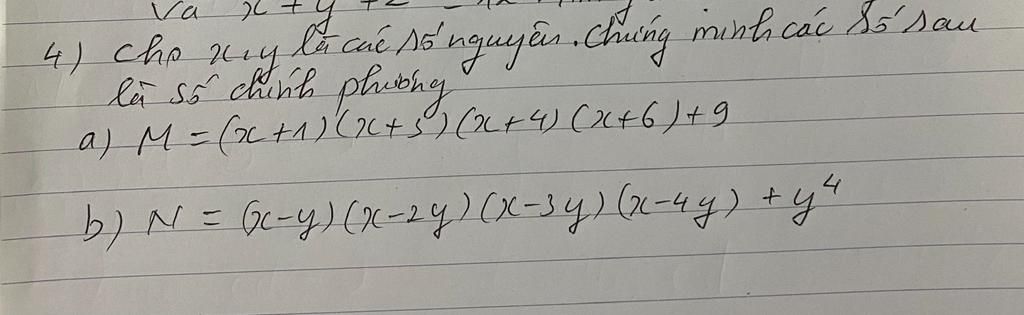 Và x + y + 2
4) Cho x, y là các số nguyên. Chứng minh các số sau
là số chính phương
a) M = (x+1)(x+3)(x+4)(x+6)+9
b) N = (x-y)(x-2y)(x-3y)(x-4y) + y⁴